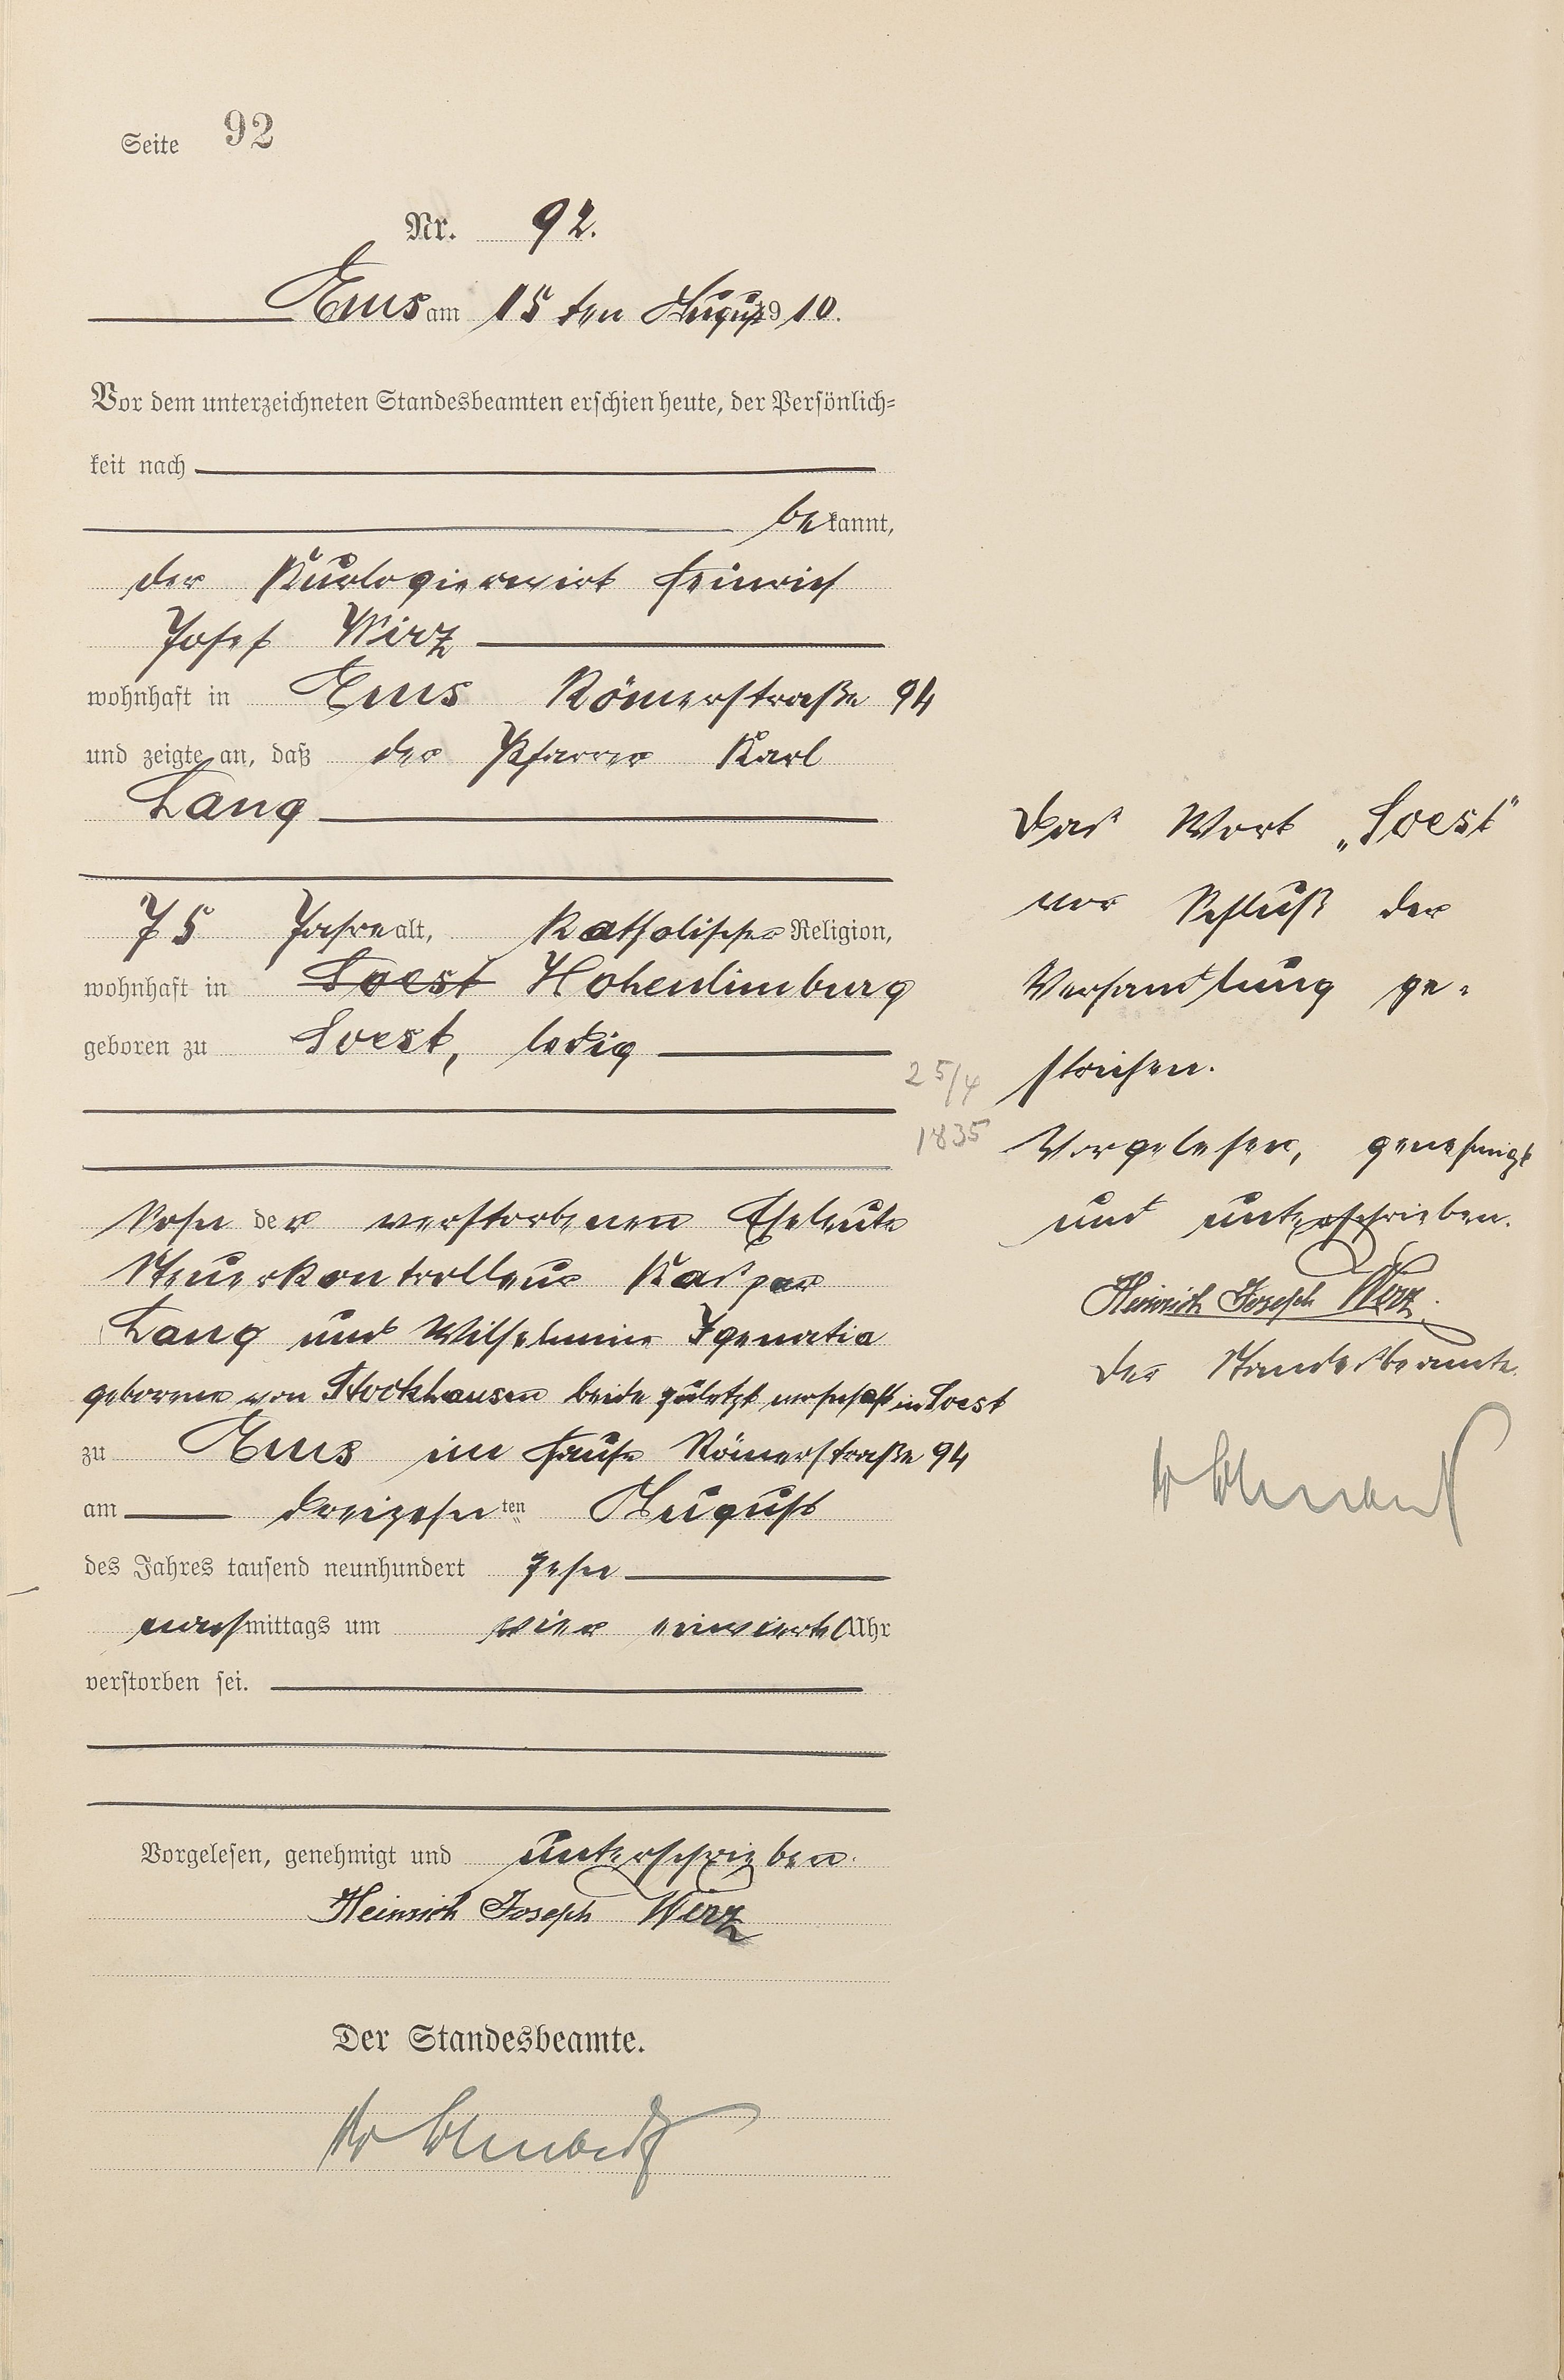 Seite 92
Nr. 92.
Ems am 15ten August 1910.
Vor dem unterzeichneten Standesbeamten erschien heute, der Persönlich-
keit nach
bekannt,
der Kurlogierwirt Heinrich
Josef Wirz
wohnhaft in Ems Römerstraße 94
und zeigte an, daß der Pfarrer Karl
Lang
75 Jahre alt, katholischer Religion,
wohnhaft in Soest Hohenlimburg
geboren zu Soest, ledig
Sohn der verstorbenen Eheleute
Steuerkontrolleur Kaspar
Lang und Wilhelmine Igenatia
geborene von Stockhausen beide zuletzt wohnhaft in Soest
zu Ems im Hause Römerstraße 94
am dreizehnten August
des Jahres tausend neunhundert zehn
nachmittags um vier einviertel Uhr
verstorben sei.
Vorgelesen, genehmigt und unterschrieben.
Heinrich Joseph Wirz
Der Standesbeamte.
25/4
1835
Das Wort „Soest"
vor Schluß der
Verhandlung ge-
strichen.
Vorgelesen, genehmigt
und unterschrieben.
Heinrich Joseph Wirz.
Der Standesbeamte.